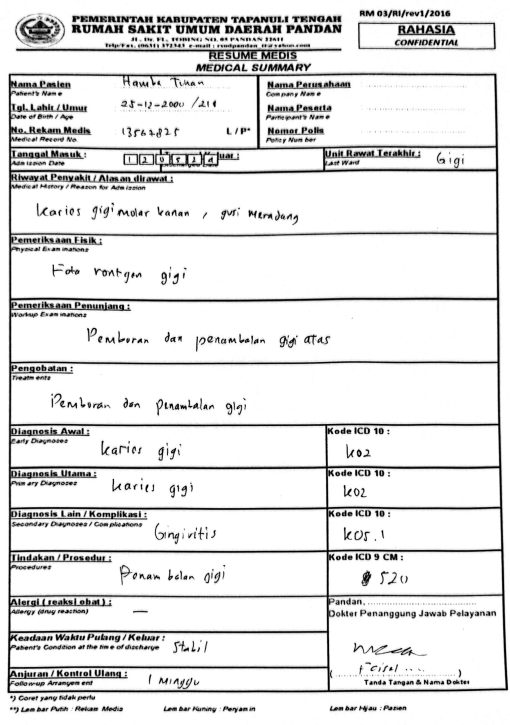 RM 03/RI/rev1/2016
PEMERINTAH KABUPATEN TAPANULI TENGAH
RUMAH SAKIT UMUM DAERAH PANDAN
JL. Dr. FL. TOBING NO. 03 PANDAN 22611
Telp/Fax. (0631) 372343 e-mail : rsudpandan_tt@yahoo.com
RAHASIA
CONFIDENTIAL
RESUME MEDIS
MEDICAL SUMMARY
Nama Pasien Hamba Tuhan
Patient's Name
Nama Perusahaan
Company Name
Tgl. Lahir / Umur 25-12-2000 /
Date of Birth / Age
Nama Peserta
Participant's Name
No. Rekam Medis L / P*
Medical Record No.
Nomor Polis
Policy Number
Tanggal Masuk :
Admission Date
Unit Rawat Terakhir : Gigi
Last Ward
Riwayat Penyakit / Alasan dirawat :
Medical History / Reason for Admission
karies gigi molar kanan , gusi meradang
Pemeriksaan Fisik :
Physical Examinations
Foto rontgen gigi
Pemeriksaan Penunjang :
Workup Examinations
Pemboran dan penambalan gigi atas
Pengobatan :
Treatments
Pemboran dan penambalan gigi
Diagnosis Awal : Kode ICD 10 :
Early Diagnoses
karies gigi K02
Diagnosis Utama : Kode ICD 10 :
Primary Diagnoses
karies gigi K02
Diagnosis Lain / Komplikasi : Kode ICD 10 :
Secondary Diagnoses / Complications
Gingivitis K05.1
Tindakan / Prosedur : Kode ICD 9 CM :
Procedures
Penambalan gigi 520
Alergi ( reaksi obat ) : —
Allergy (drug reaction)
Pandan,
Dokter Penanggung Jawab Pelayanan
Keadaan Waktu Pulang / Keluar :
Patient's Condition at the time of discharge Stabil
Anjuran / Kontrol Ulang : 1 Minggu
Follow-up Arrangement
Tanda Tangan & Nama Dokter
*) Coret yang tidak perlu
**) Lembar Putih : Rekam Medis Lembar Kuning : Penjamin Lembar Hijau : Pasien